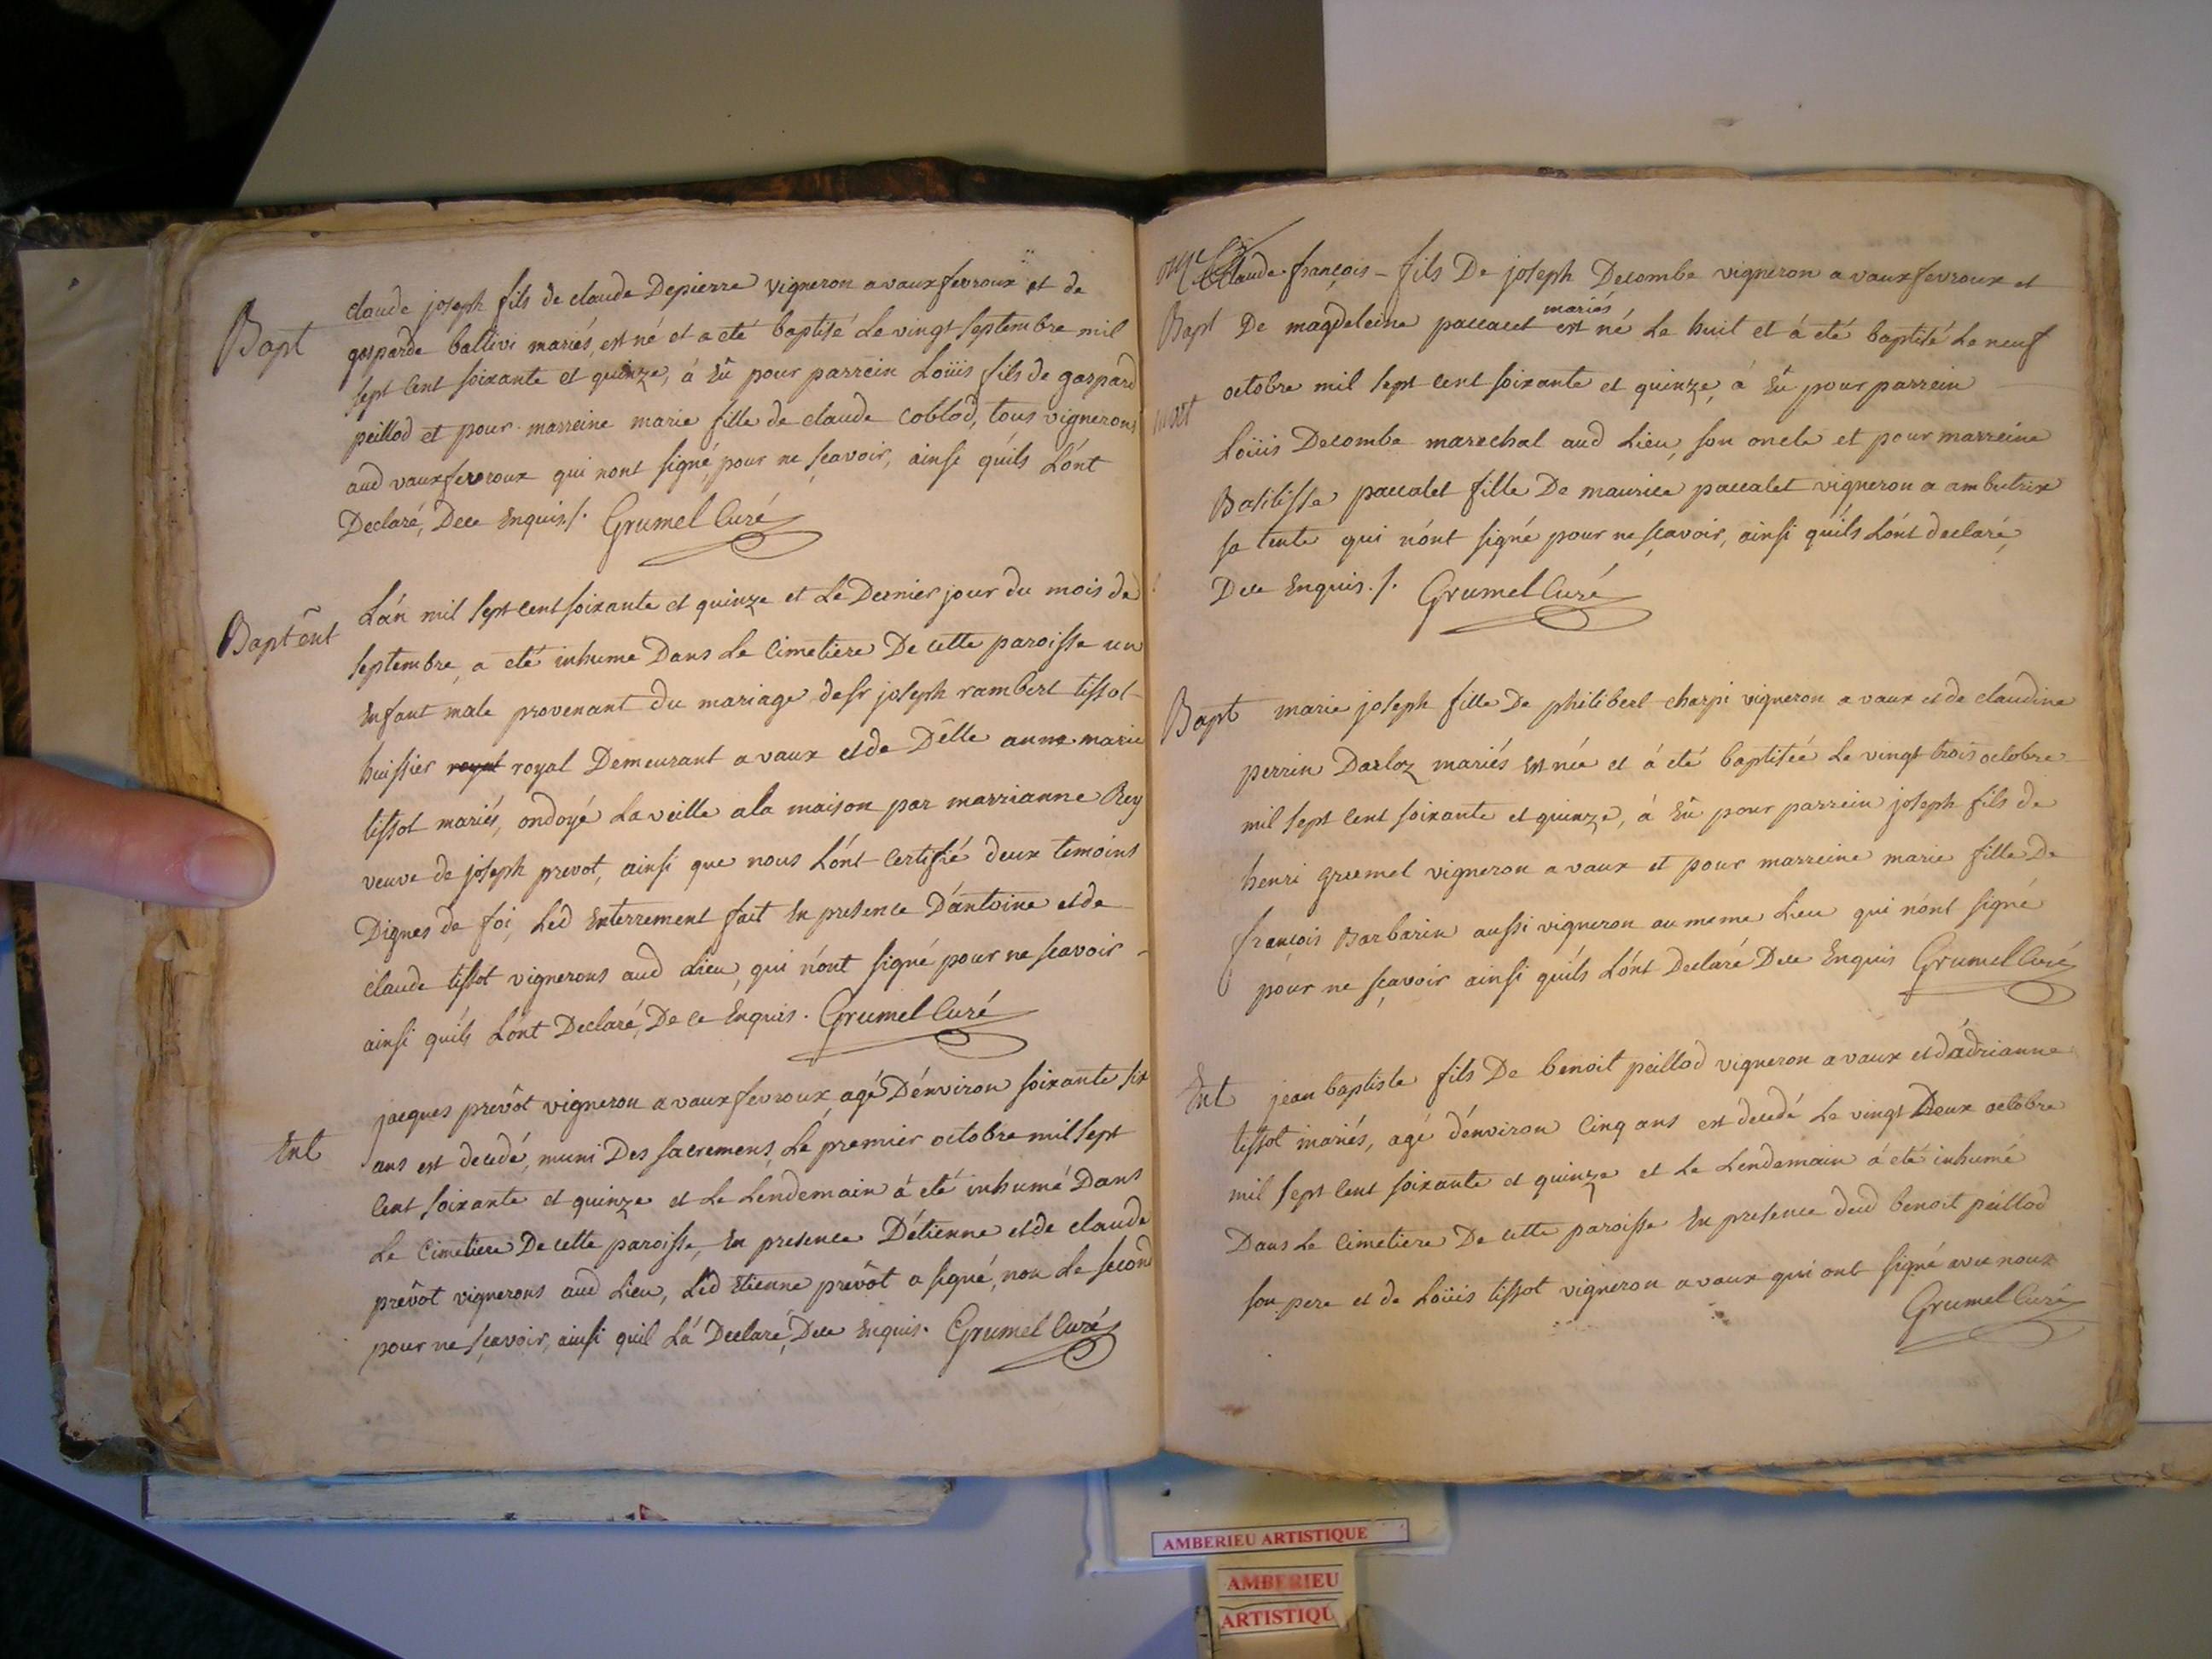 Bapt
claude joseph fils de claude Depierre vigneron a vaux fevroux et de
gasparde ballivi mariés, est né et a eté baptisé Le vingt septembre mil
sept cent soixante et quinze, á Eû pour parrein Loüis fils de gaspard
peillod et pour marreine marie fille de claude coblod, tous vignerons
aud vaux fevroux qui nont signé, pour ne sçavoir, ainsi qu'ils L'ont
Declaré, Dece Enquis /. Grumel Curé
Bapt ent
L'an mil sept cent soixante et quinze et Le Dernier jour du mois de
septembre, a eté inhumé Dans Le Cimetiere De cette paroisse un
Enfant male provenant du mariage de sr joseph rambert tissot
huissier royal royal Demeurant a vaux et de Delle anne marie
tissot mariés, ondoyé La veille a la maison par marrianne Rey
veuve de joseph prevot, ainsi que nous L'ont Certifié deux temoins
Dignes de foi, Led Enterrement fait En presence D'antoine et de
claude tissot vignerons aud Lieu, qui n'ont signé pour ne scavoir
ainsi qu'ils L'ont Declaré, De ce Enquis. Grumel Curé
Ent
jacques prevôt vigneron a vaux fevroux, agé D'environ soixante six
ans est decedé, muni Des sacremens, Le premier octobre mil sept
Cent soixante et quinze et Le Lendemain á eté inhumé Dans
Le Cimetiere De cette paroisse, En presence D'etienne et de claude
prevôt vignerons aud Lieu, Led Etienne prevôt a signé, non Le second
pour ne sçavoir, ainsi quil L'a Declaré, Dece Enquis. Grumel Curé
Claude françois - fils De joseph Decombe vigneron a vaux fevroux et
mariés
Bapt De magdeleine paccalet est né Le huit et á eté baptisé Le neuf
octobre mil sept cent soixante et quinze, á Eû pour parrein
mort
Loüis Decombe marechal aud Lieu, son oncle et pour marreine
Basilisse paccalet fille De maurice paccalet vigneron a ambutrix
sa tente qui n'ont signé pour ne sçavoir, ainsi qu'ils L'ont declaré,
Dece Enquis. /. Grumel Curé
Bapt marie joseph fille De philibert charpi vigneron a vaux et de claudine
perrin Darloz mariés Est née et á eté baptisée Le vingt trois octobre
mil sept cent soixante et quinze, á Eû pour parrein joseph fils de
henri grumel vigneron a vaux et pour marreine marie fille De
françois Barbarin aussi vigneron au meme Lieu qui n'ont signé
pour ne sçavoir ainsi qu'ils L'ont Declaré Dece Enquis Grumel Curé
Ent jean baptiste fils De benoit peillod vigneron a vaux et d'adrianne
tissot mariés, agé d'environ Cinq ans est decedé Le vingt Deux octobre
mil sept cent soixante et quinze et Le Lendemain á eté inhumé
Dans Le Cimetiere De cette paroisse En presence dud benoit peillod
son pere et de Loüis tissot vigneron a vaux qui ont signé avec nous
Grumel Curé
AMBERIEU ARTISTIQUE
AMBERIEU
ARTISTIQU